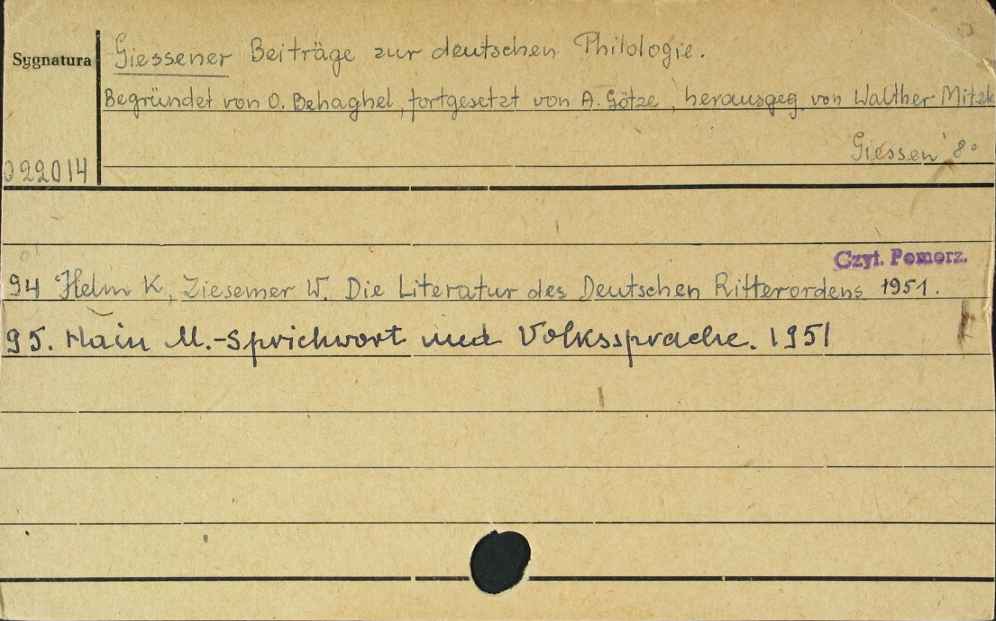 Sygnatura
Giessener Beiträge zur deutschen Philologie.
Begründet von O. Behaghel, fortgesetzt von A. Götze, herausgeg. von Walther Mitzk
Giessen 8°
022014
Czyt. Pomorz.
94 Helm K, Ziesemer W. Die Literatur des Deutschen Ritterordens 1951.
95. Hain M.-Sprichwort und Volkssprache. 1951